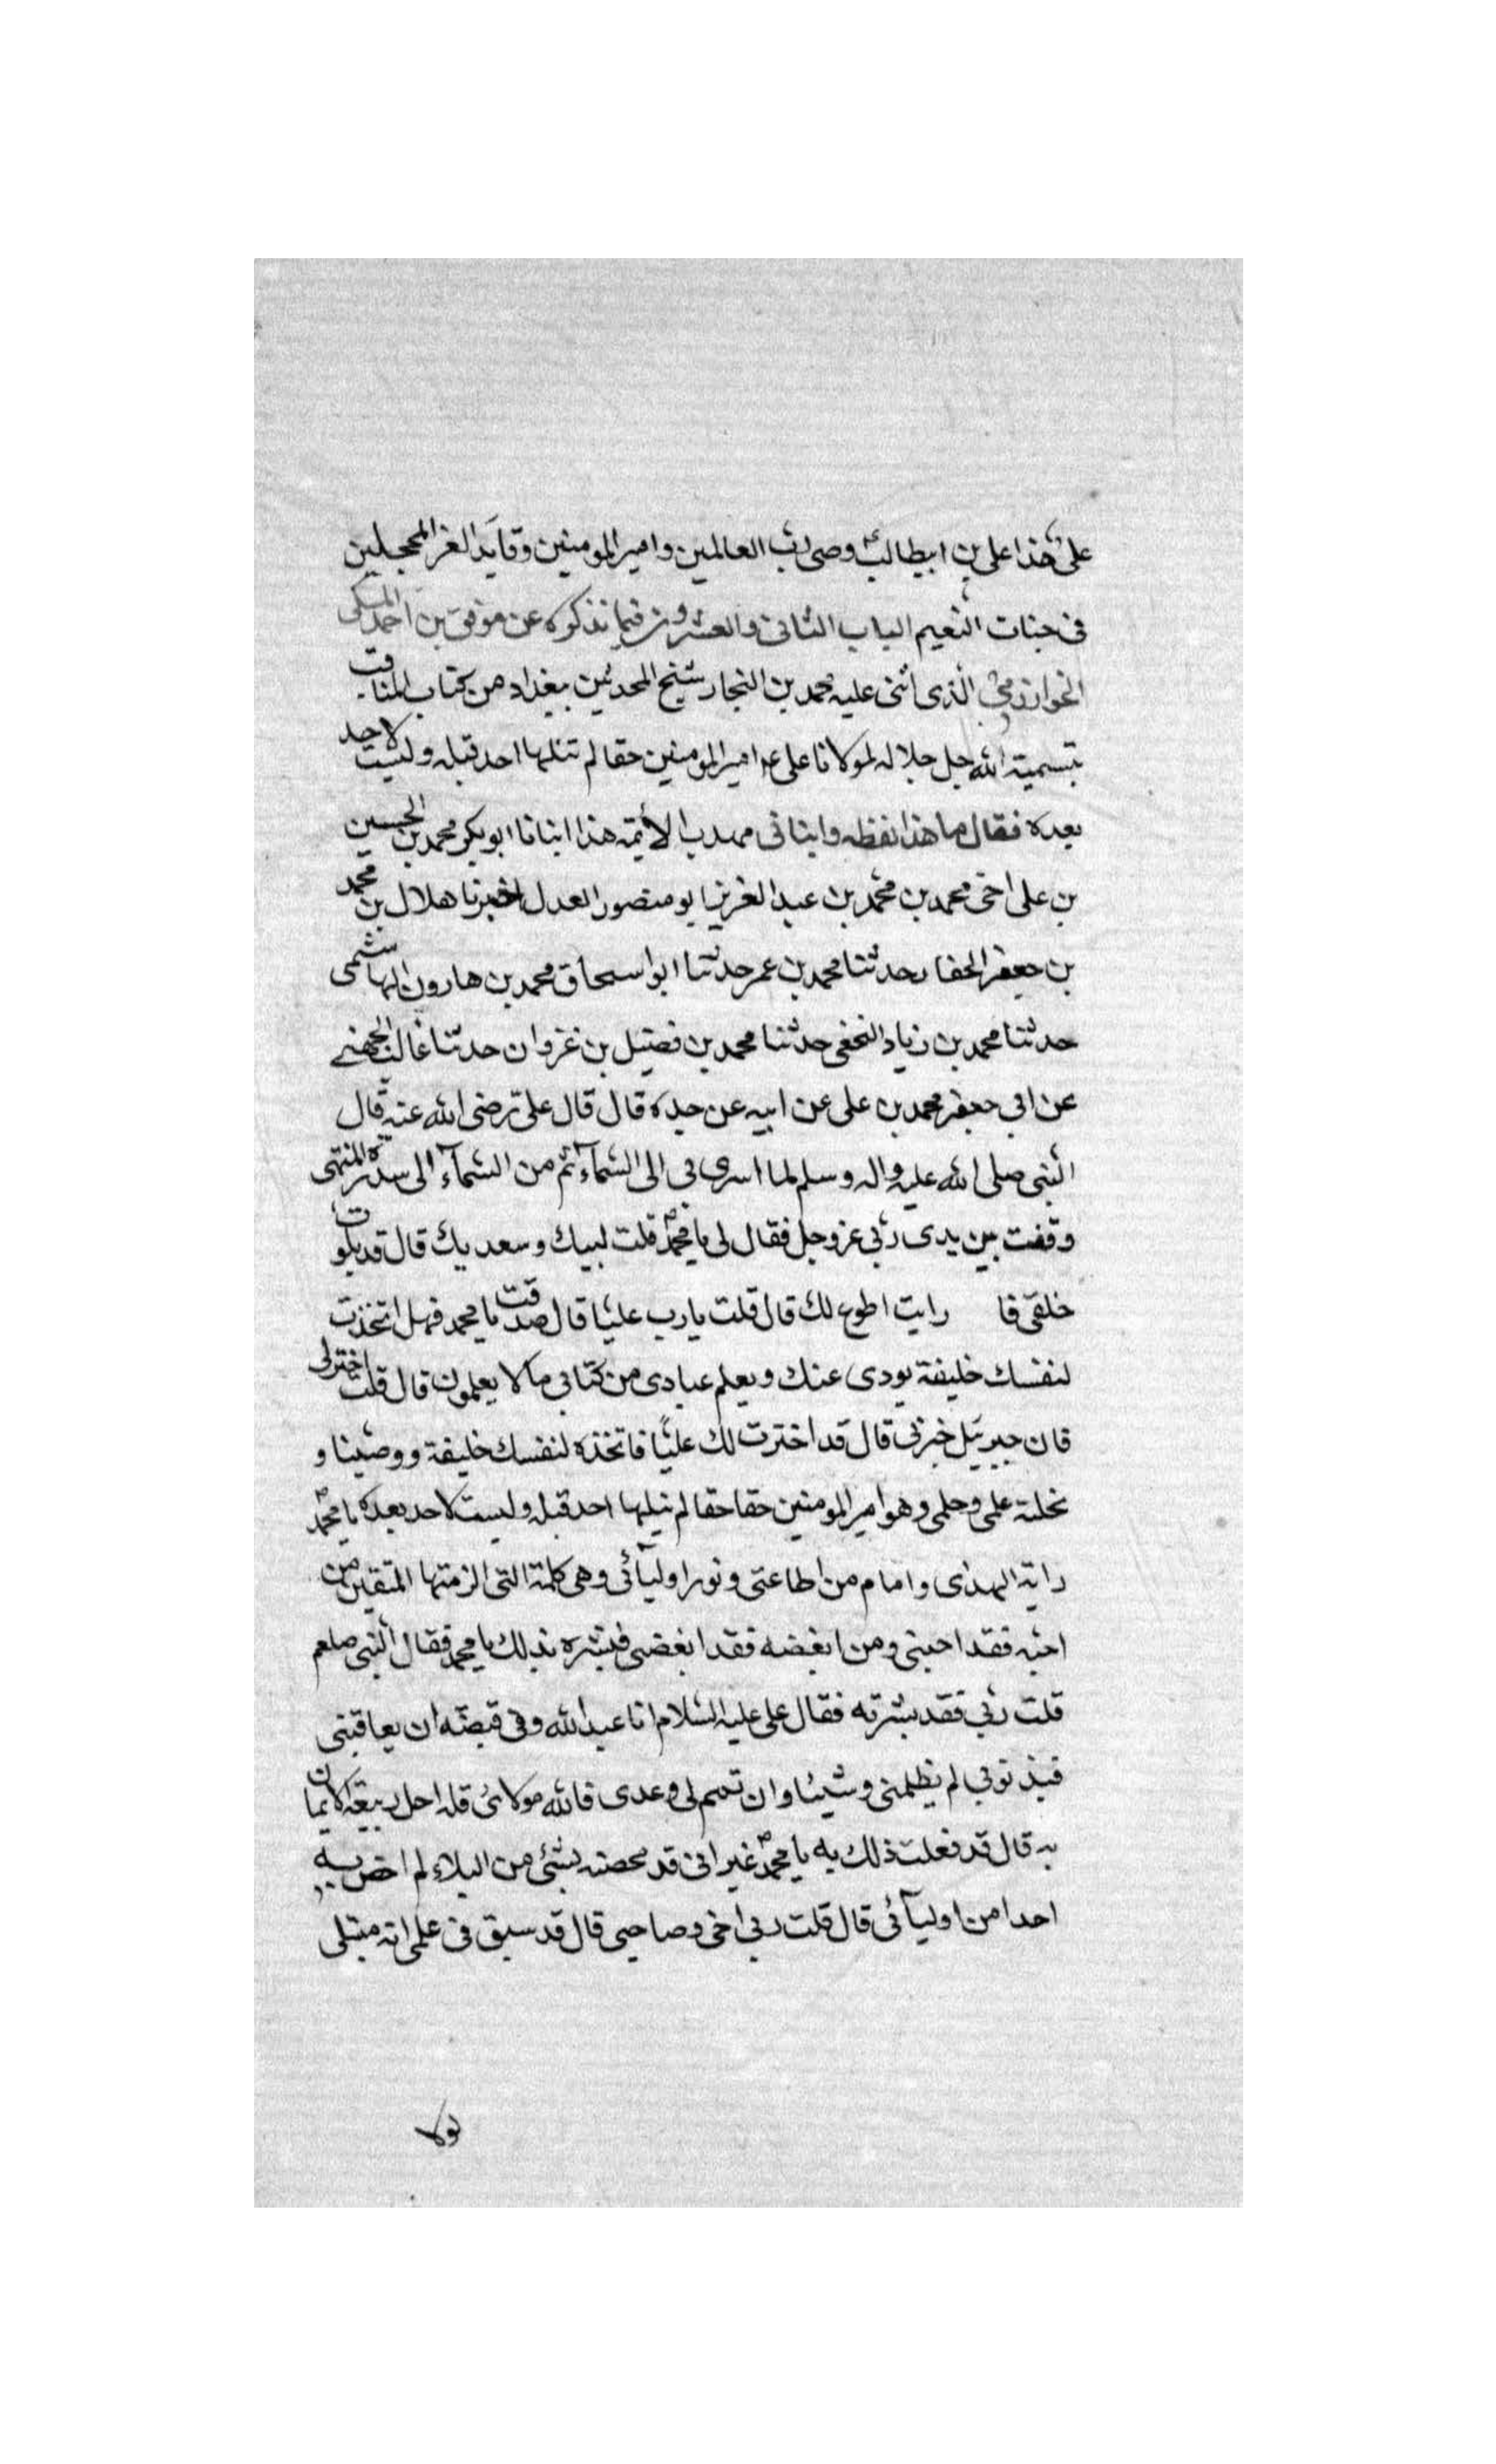 علی هذا علی بن ابیطالب وصی رب العالمین وامیر المومنین وقاید الغر المحجلین
فی جنات النعیم الباب الثانی والعشرون فیما نذکره عن موفق بن احمد المکی
الخوارزمی الذی اثنی علیه محمد بن النجار شیخ المحدثین ببغداد من کتاب المناقب
بتسمیة الله جل جلاله لمولانا علی ع امیر المومنین حقا لم تنلها احد قبله ولیست لاحد
بعده فقال ما هذا لفظه وانبانی مهذب الأیمّة هذا انبانا ابو بکر محمد بن الحسین
بن علی اخی محمد بن محمد بن عبد العزیز ابو منصور العدل اخبرنا هلال بن محمد
بن جعفر الحفار حدثنا محمد بن عمر حدثنا ابو اسحاق محمد بن هارون الهاشمی
حدثنا محمد بن زیاد النخعی حدثنا محمد بن فضیل بن غزوان حدثنا غالب الجهنی
عن ابی جعفر محمد بن علی عن ابیه عن جده قال قال علی رضی الله عنه قال
النبی صلی الله علیه واله وسلم لما اسری بی الی السّمآء ثم من السّمآء الی سدرة المنتهی
وقفت بین یدی ربّی عز وجل فقال لی یا محمد قلت لبیك وسعدیك قال قد بلوت
خلقی فا رایت اطوع لك قال قلت یارب علیّا قال صدقت یا محمد فهل اتخذت
لنفسك خلیفة یودی عنك ویعلم عبادی من کتابی ما لا یعلمون قال قلت اخترلی
فان جبرئیل خبرنی قال قد اخترت لك علیّا فاتخذه لنفسك خلیفة ووصیّنا و
نحلته علمی وحلمی وهو امیر المومنین حقا حقا لم ینلها احد قبله ولیست لاحد بعده یا محمد
رایة الهدی وامام من اطاعتی ونور اولیآئی وهی کلمة التی الزمتها المتقین من
احبّه فقد احبنی ومن ابغضه فقد ابغضنی فبشره بذلك یا محمد فقال النبی صلعم
قلت ربّی فقد بشرته فقال علی علیه السّلام انا عبد الله وفی قبضته ان یعاقبنی
فبذنوبی لم یظلمنی وشیئا وان تمم لی وعدی فالله مولائ قله احل ربیعة الایمان
به قال قد فعلت ذلك به یا محمد غیر انی قد محصته بشئ من البلاء لم اخص به
احدا من اولیآئی قال قلت ربی اخی وصاحبی قال قد سبق فی علمی انه مبتلی
لولا